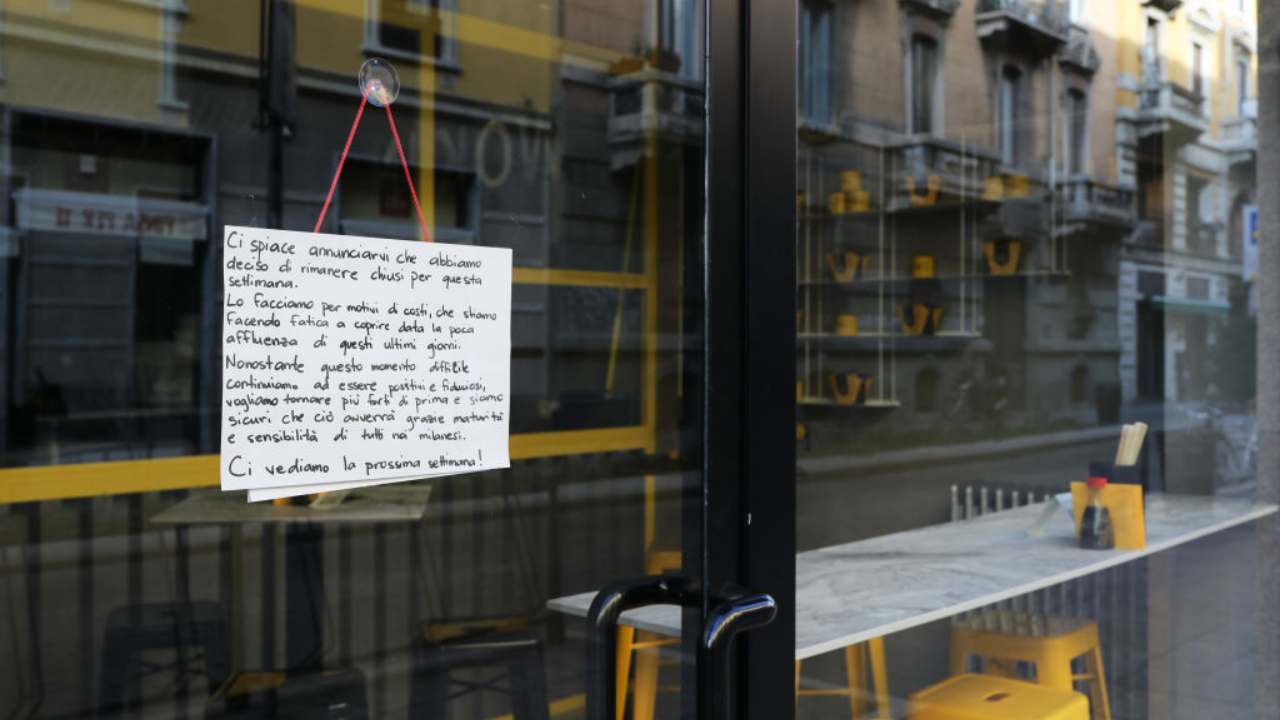 Ci spiace annunciarvi che abbiamo
deciso di rimanere chiusi per questa
settimana.
Lo facciamo per motivi di costi, che stiamo
facendo fatica a coprire data la poca
affluenza di questi ultimi giorni.
Nonostante questo momento difficile
continuiamo ad essere positivi e fiduciosi,
vogliamo tornare più forti di prima e siamo
sicuri che ciò avverrà grazie maturità
e sensibilità di tutti noi milanesi.
Ci vediamo la prossima settimana!